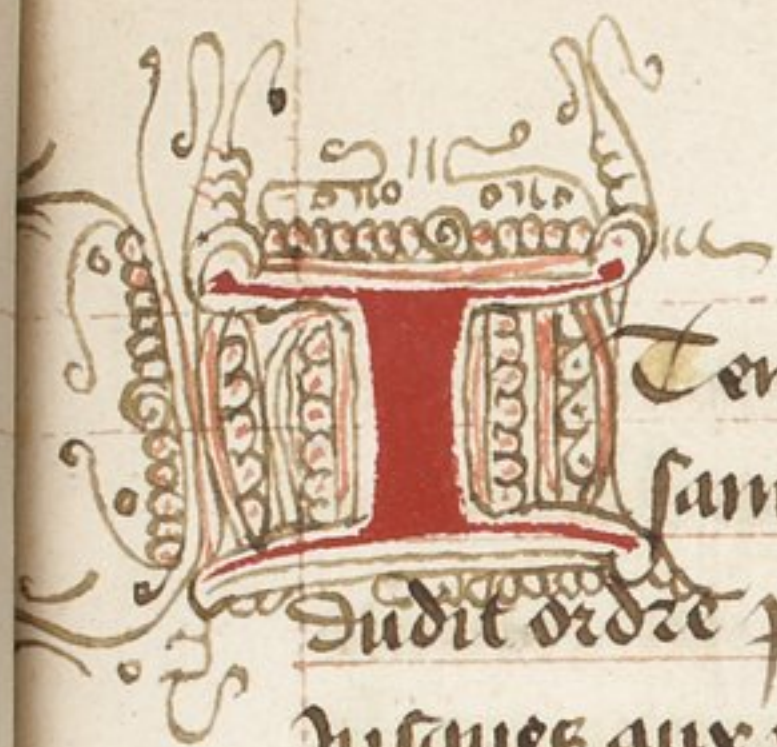 ITe
dudit ordre
Jusques aux